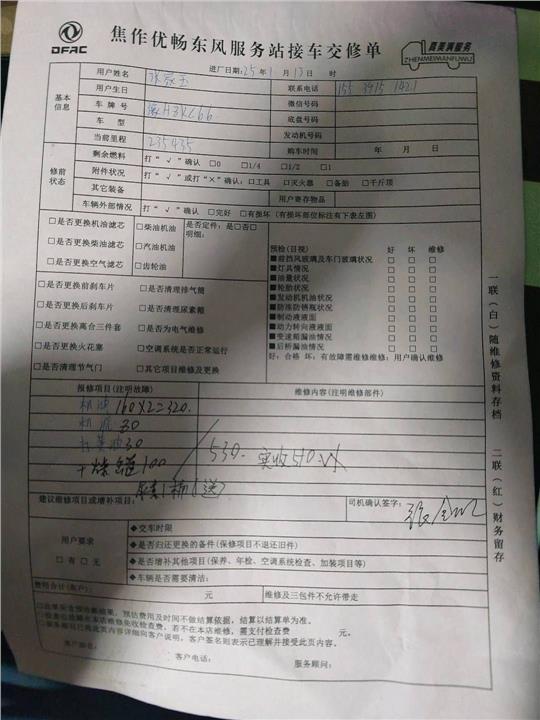 DFAC
焦作优畅东风服务站接车交修单
真美满服务
ZHENMEIMANFUWU
进厂日期:25年1月17日 时
基本信息
用户姓名
联系电话 155 3915 1421
用户生日
微信号码
车牌号
底盘号码
车型
发动机号码
当前里程 235435
购车时间 年 月 日
修前状态
剩余燃料 打“√”确认 □0 □1/4 □1/2 □1
附件状况 打“√”或打“×”确认:□工具 □灭火器 □备胎 □千斤顶
其它装备
用户寄存物品
车辆外部情况 打“√”确认 □完好 □有损坏(有损部位标注有下表左图)
□是否更换机油滤芯
□是否更换柴油滤芯
□是否更换空气滤芯
□柴油机油
□汽油机油
□齿轮油
是否定件:是□否□
明细:
□是否更换前刹车片
□是否更换后刹车片
□是否更换离合三件套
□是否更换火花塞
□是否清理节气门
□是否清理排气筒
□是否清理尿素箱
□是否为电气维修
□空调系统是否正常运行
□其它项目维修及更换
预检(目视) 好 坏 维修
■前挡风玻璃及车门玻璃状况 □ □ □
■灯具情况 □ □ □
■油量状况 □ □ □
■轮胎状况 □ □ □
■发动机机油状况 □ □ □
■防冻防锈瓶状况 □ □ □
■制动液液面 □ □ □
■动力转向液液面 □ □ □
■变速箱漏油情况 □ □ □
■后桥漏油情况 □ □ □
好:合格 坏:有故障需维修维修:用户确认维修
报修项目(注明故障)
维修内容(注明维修部件)
机油 160X2=320.
机滤 30
530. 实收510
建议维修项目或增补项目:
司机确认签字:
用户要求
□有□无
◆交车时限
◆是否归还更换的备件(保修项目不退还旧件)
◆是否增补其他项目(保养、年检、空调系统检查、加装项目等)
◆车辆是否需要清洁:
元
维修及三包件不允许带走
预估费用及时间不做结算依据,结算以结算单为准。
若不在本店维修,需支付检查费 元。
客户签名则表示已理解并接受此页内容。
客户电话:
服务顾问:
一联(白)随维修资料存档
二联(红)财务留存